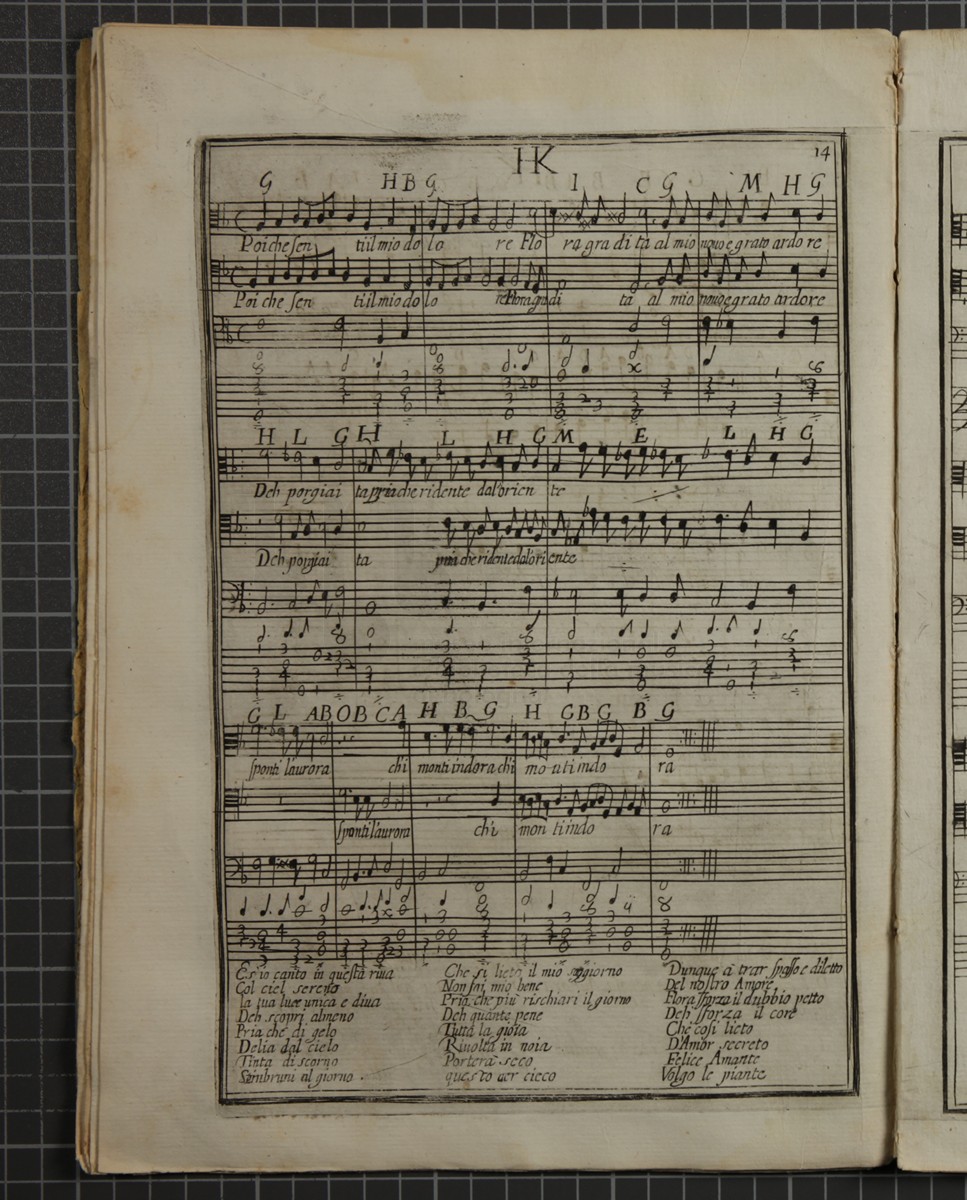 HK
14
G H B G I C G M H G
Poiche sen tiil mio do lo re Flo ra gra di ta al mio nuouo e grato ardo re
Poi che sen tiil mio do lo re Flora gra di ta al mio nouo e grato ardore
H L G H L H G M E L H G
Deh porgi ai ta pria che ridente dal'orien te
Deh porgiai ta pria che ridente dal'ori ente
G L A B O B C A H B G H G B G B G
sponti l'aurora chi monti indora chi mo nti indo ra
sponti l'aurora chi mon ti indo ra
Es'io canto in questa riua
Col ciel sereno
la tua luce unica e diua
Deh scopri almeno
Pria che di gelo
Delia dal cielo
Tinta di scorno
S'imbruni al giorno.
Che si lieto il mio soggiorno
Non fai mio bene
Pria che piu rischiari il giorno
Deh quante pene
Tutta la gioia
Riuolta in noia
Porterà seco
questo aer cieco
Dunque à trar spasso e diletto
Del nostro Amore
Flora sforza il dubbio petto
Deh sforza il core
Che così lieto
D'Amor secreto
Felice Amante
Volgo le piante